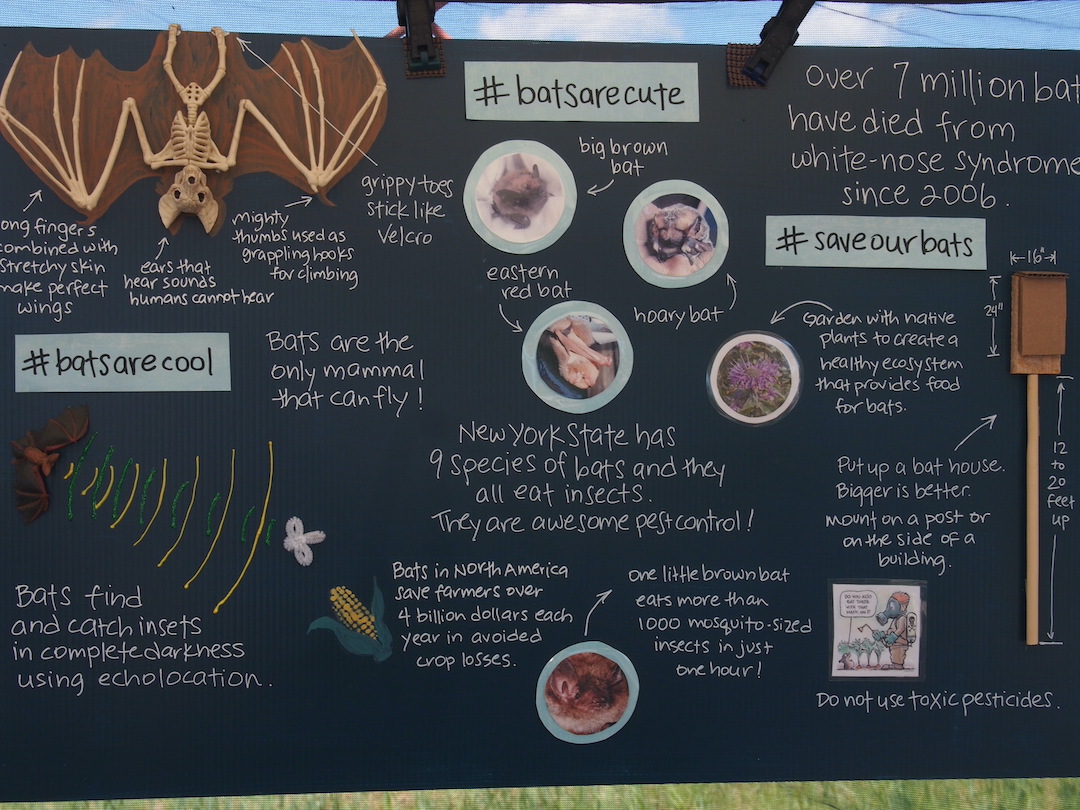 #batsarecute
over 7 million bat
have died from
white-nose syndrome
since 2006.
#saveourbats
big brown
bat
hoary bat
eastern
red bat
grippy toes
stick like
velcro
mighty
thumbs used as
grappling hooks
for climbing
ears that
hear sounds
humans cannot hear
ong fingers
combined with
stretchy skin
make perfect
wings
#batsarecool
Bats are the
only mammal
that can fly!
Garden with native
plants to create a
healthy ecosystem
that provides food
for bats.
16"
24"
12
to
20
feet
up
New York State has
9 species of bats and they
all eat insects.
They are awesome pest control!
Put up a bat house.
Bigger is better.
mount on a post or
on the side of a
building.
Bats find
and catch insets
in complete darkness
using echolocation.
Bats in North America
save farmers over
4 billion dollars each
year in avoided
crop losses.
one little brown bat
eats more than
1000 mosquito-sized
insects in just
one hour!
Do not use toxic pesticides.